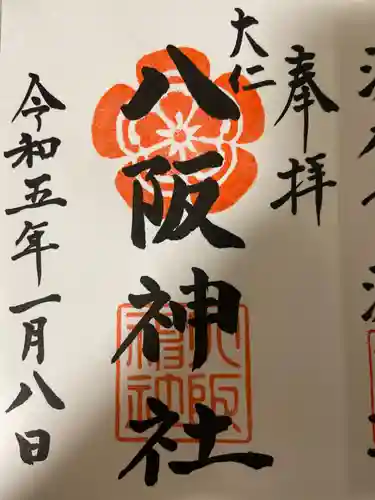 奉拝
大仁
八阪神社
令和五年一月八日